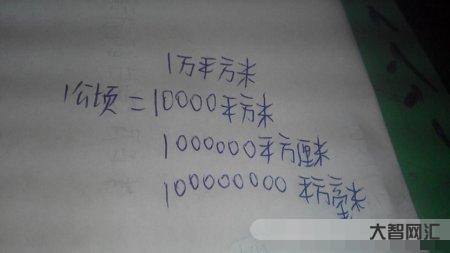 1万平方米
1公顷=10000平方米
1000000平方厘米
100000000 平方毫米
大智网汇